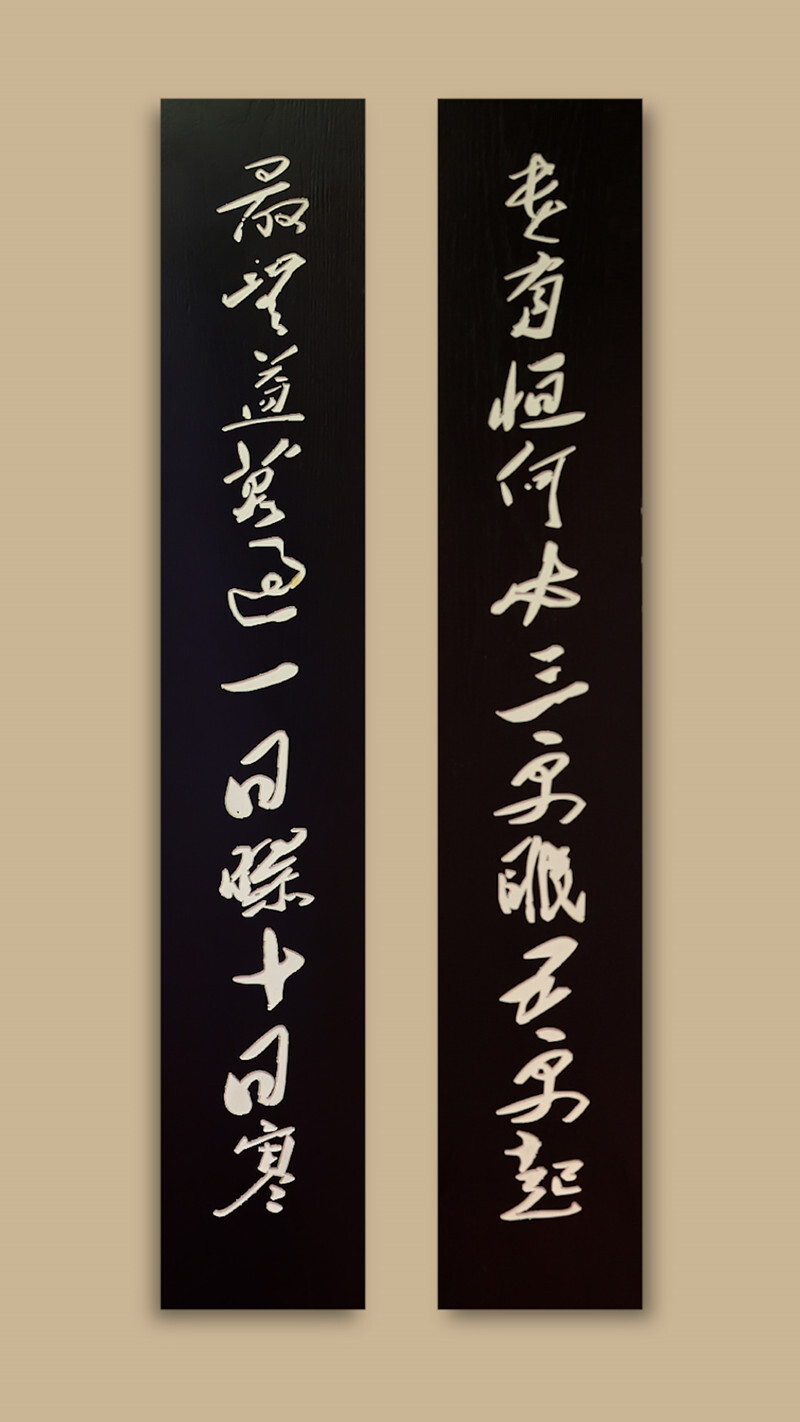 贵有恒何必三更眠五更起
最无益莫过一日曝十日寒